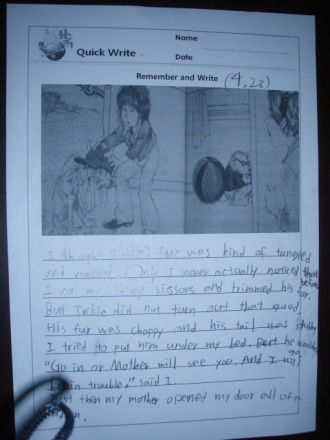 Quick Write
Name
Date
Remember and Write (4.23)
I fur was kind of tangled
and Only I never actually noticed that before.
I got my sissors and trimmed his fur.
But did not turn out that good.
His fur was choppy and his tail was
I tried to put him under my bed. But he wouldn't go.
"Go in or Mother will see you. And I will
be in trouble," said I.
Just then my mother opened my door all of a